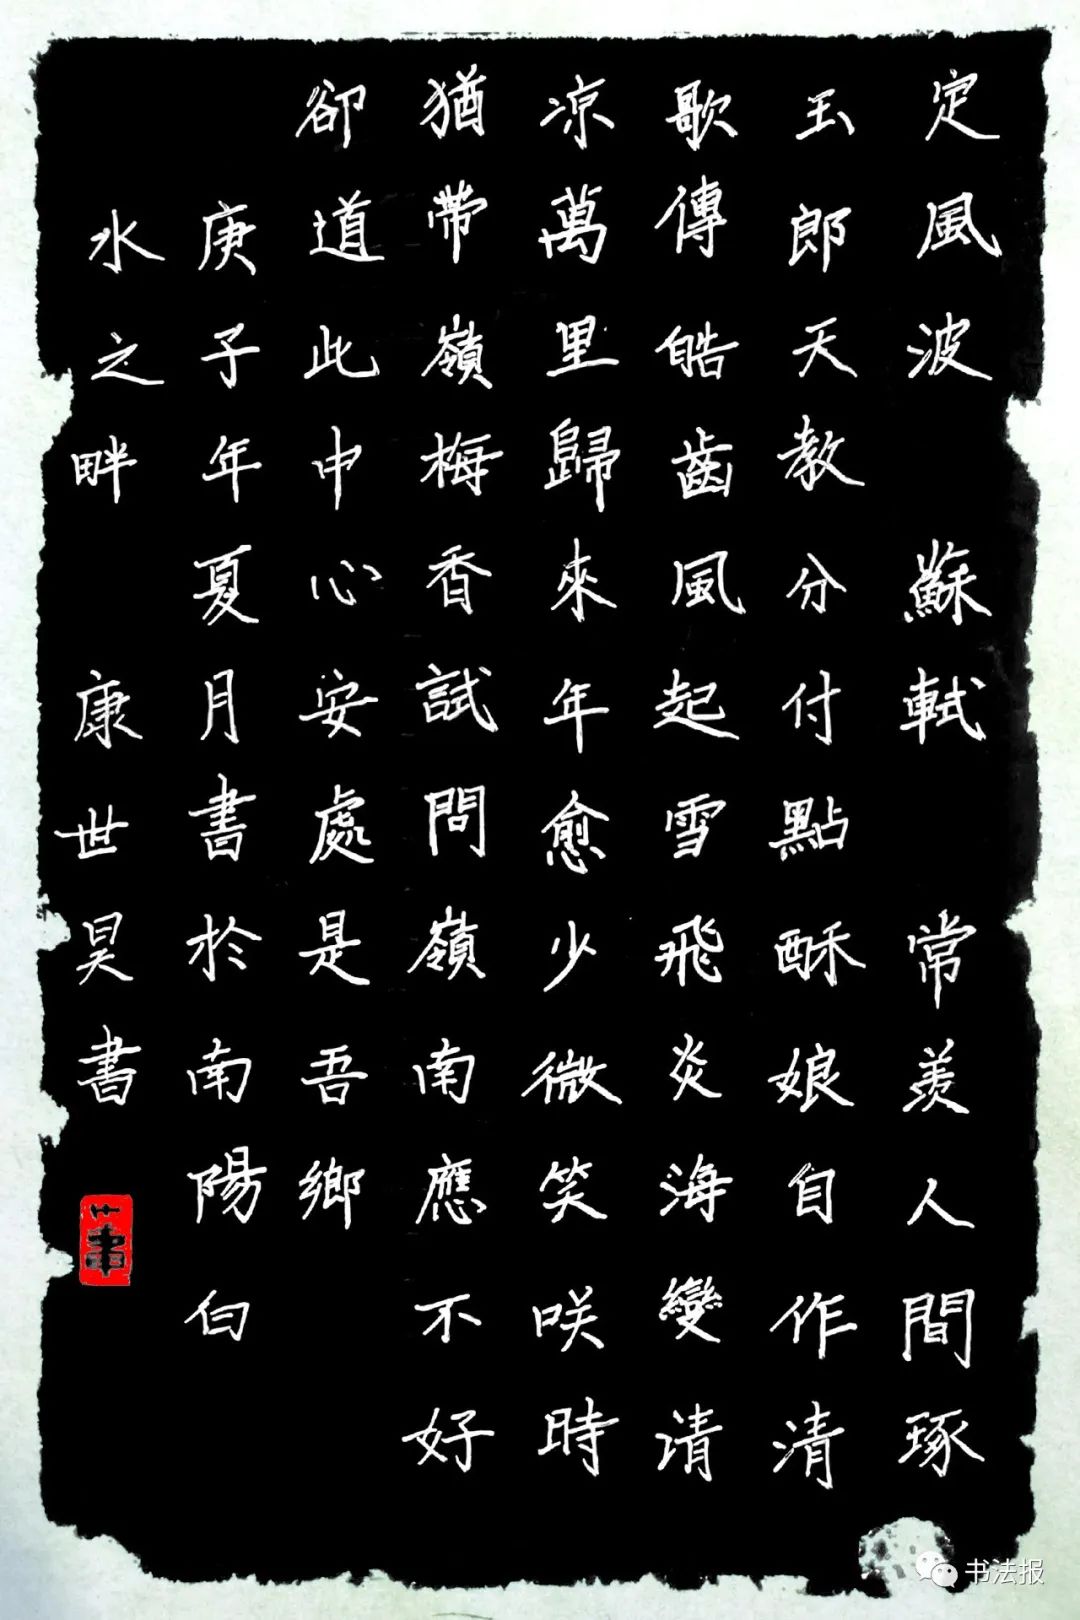 定風波 蘇軾 常羨人間琢
玉郎天教分付點酥娘自作清
歌傳皓齒風起雪飛炎海變清
凉萬里歸來年愈少微笑咲時
猶帶嶺梅香試問嶺南應不好
卻道此中心安處是吾鄉
庚子年夏月書於南陽白
水之畔 康世昊書
书法报